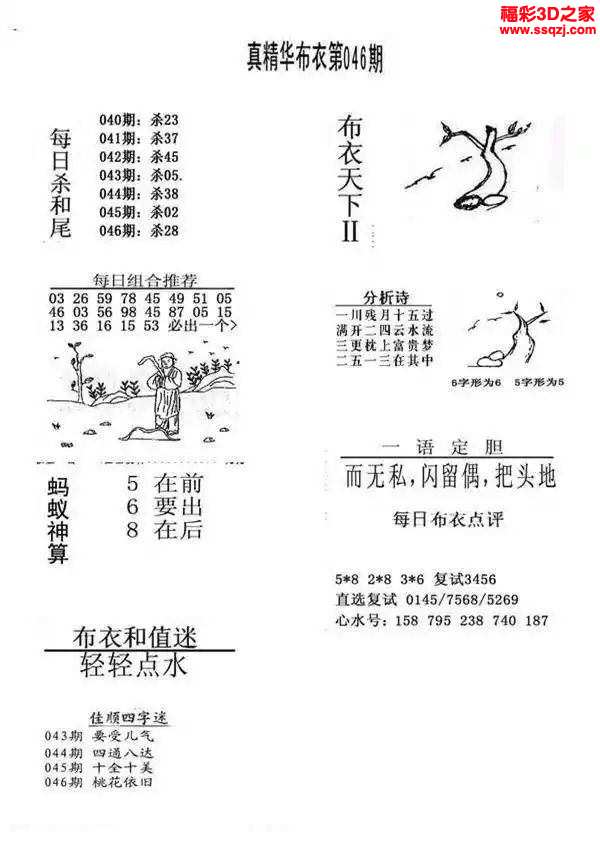 福彩3D之家
www.ssqzj.com
真精华布衣第046期
每日杀和尾
040期：杀23
041期：杀37
042期：杀45
043期：杀05.
044期：杀38
045期：杀02
046期：杀28
布衣天下II
每日组合推荐
03 26 59 78 45 49 51 05
46 03 56 98 45 87 05 15
13 36 16 15 53 必出一个>
分析诗
一川残月十五过
满开二四云水流
三更枕上富贵梦
二五一三在其中
6字形为6 5字形为5
蚂蚁神算
5 在前
6 要出
8 在后
一语定胆
而无私,闪留偶,把头地
每日布衣点评
5*8 2*8 3*6 复试3456
直选复试 0145/7568/5269
心水号: 158 795 238 740 187
布衣和值迷
轻轻点水
佳顺四字迷
043期 要受儿气
044期 四通八达
045期 十全十美
046期 桃花依旧